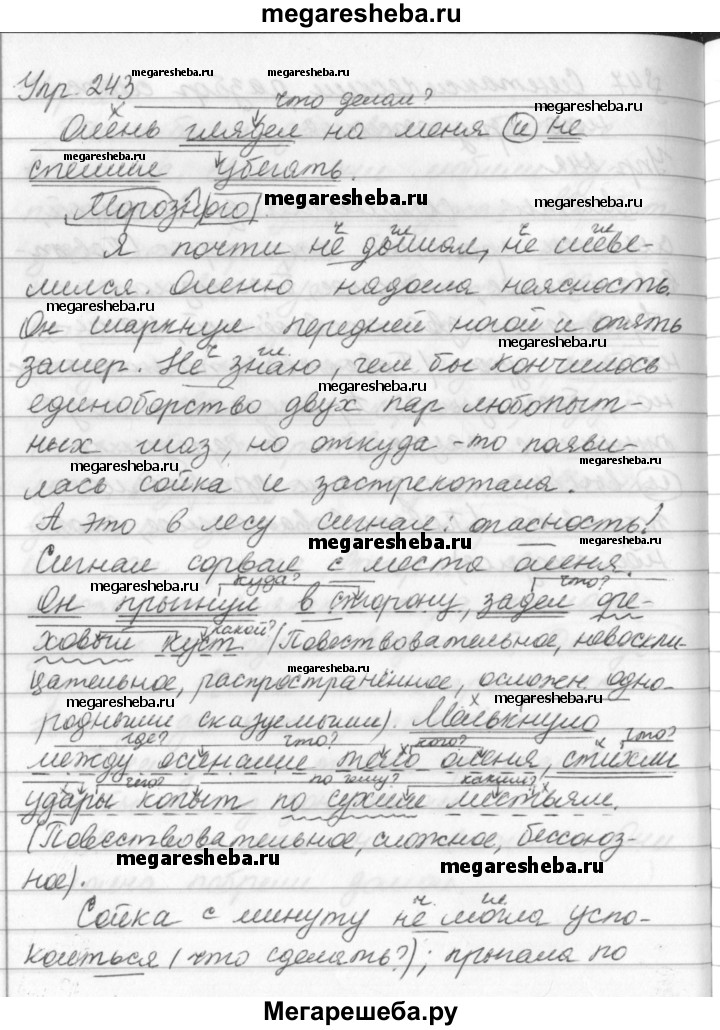 megaresheba.ru
Упр. 243 megaresheba.ru megaresheba.ru
что делал?
Олень глядел на меня и не megaresheba.ru
megaresheba.ru
спешил убегать.
Морозного. megaresheba.ru
ч гл. ч гл.
Я почти не дышал, не шеве-
megaresheba.ru
лился. Оленю надоела неясность.
megaresheba.ru
Он шаркнул передней ногой и опять
ч гл.
замер. Не знаю, чем бы кончилось
megaresheba.ru
единоборство двух пар любопыт-
megaresheba.ru
ных глаз, но откуда-то появи-
megaresheba.ru megaresheba.ru
лась сойка и застрекотала.
А это в лесу сигнал: опасность!
megaresheba.ru
Сигнал сорвал с места оленя.
megaresheba.ru куда? что?
Он прыгнул в сторону, задел оре-
какой?
ховый куст. (Повествовательное, невоскли-
megaresheba.ru
цательное, распространённое, осложн. одно-
megaresheba.ru
родными сказуемыми). Мелькнуло
где? что? кого? что?
между осинами тело оленя, стихли
чего? по чему? каким?
удары копыт по сухим листьям.
(Повествовательное, сложное, бессоюз-
megaresheba.ru megaresheba.ru
ное).
ч. гл.
Сойка с минуту не могла успо-
коиться (что сделать?); прыгала по
Мегарешеба.ру